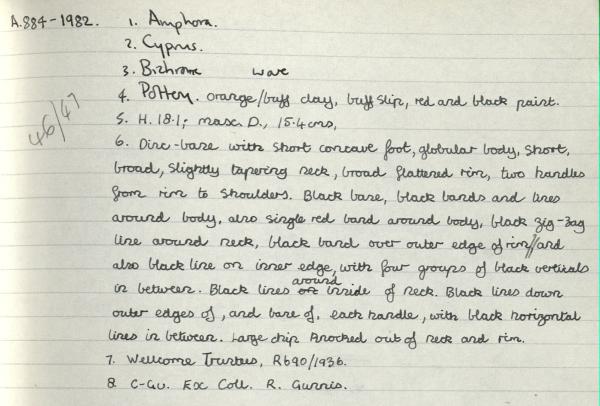 A.884-1982. 1. Amphora.
2. Cyprus.
3. Bichrome ware
4. Pottery. orange/buff clay, buff slip, red and black paint.
46/47
5. H. 18.1; max. D., 15.4 cms,
6. Disc-base with short concave foot, globular body, short,
broad, slightly tapering neck, broad flattened rim, two handles
from rim to shoulders. Black base, black bands and lines
around body, also single red band around body, black zig-zag
line around neck, black band over outer edge of rim//and
also black line on inner edge, with four groups of black verticals
in between. Black lines around inside of neck. Black lines down
outer edges of, and base of, each handle, with black horizontal
lines in between. Large chip knocked out of neck and rim.
7. Wellcome Trustees, R690/1936.
8. C-Gu. Ex Coll. R. Gunnis.